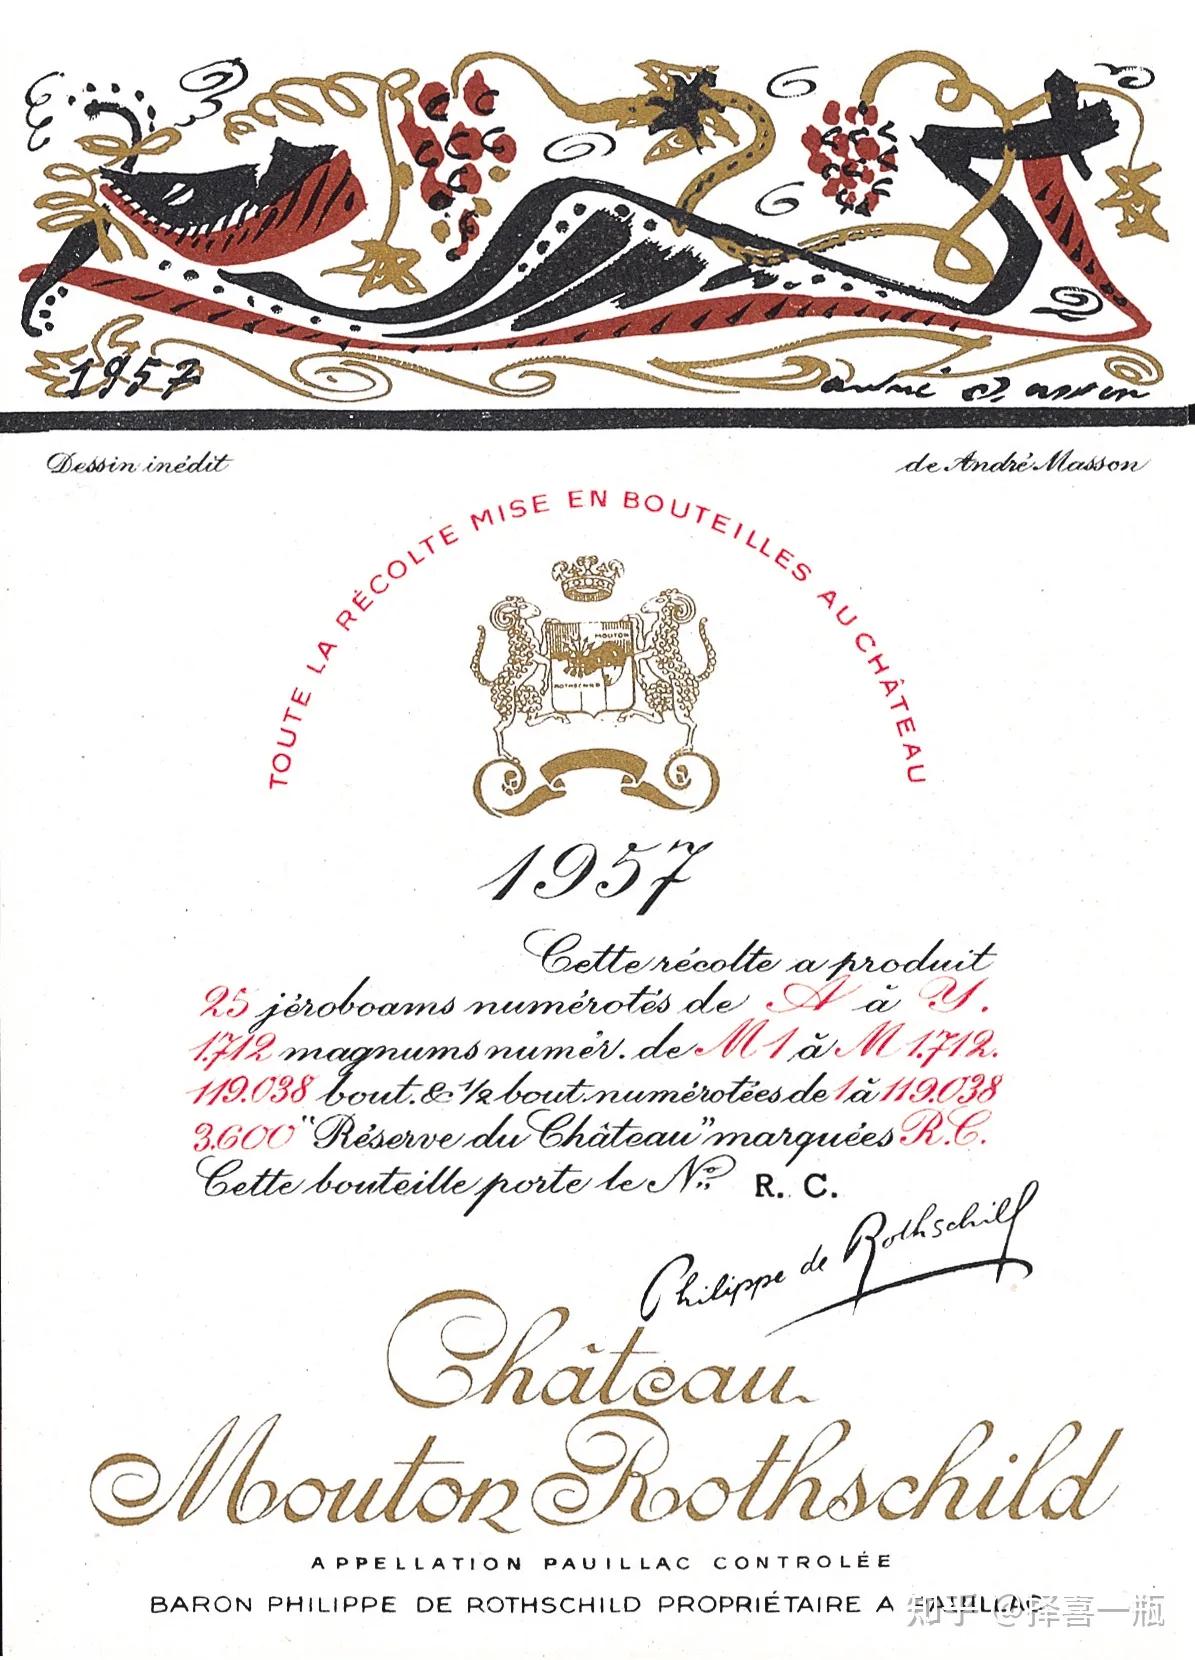 1957
andré Masson
Dessin inédit
de André Masson
TOUTE LA RÉCOLTE MISE EN BOUTEILLES AU CHÂTEAU
MOUTON
ROTHSCHILD
1957
Cette récolte a produit
25 jéroboams numérotés de A à Y.
1.712 magnums numér. de M 1 à M 1.712.
119.038 bout. & 1/2 bout numérotées de 1 à 119.038
3.600 "Réserve du Château" marquées R.C.
Cette bouteille porte le No: R. C.
Philippe de Rothschild
Château
Mouton Rothschild
APPELLATION PAUILLAC CONTROLÉE
BARON PHILIPPE DE ROTHSCHILD PROPRIÉTAIRE A PAUILLAC
知乎 @择喜一瓶